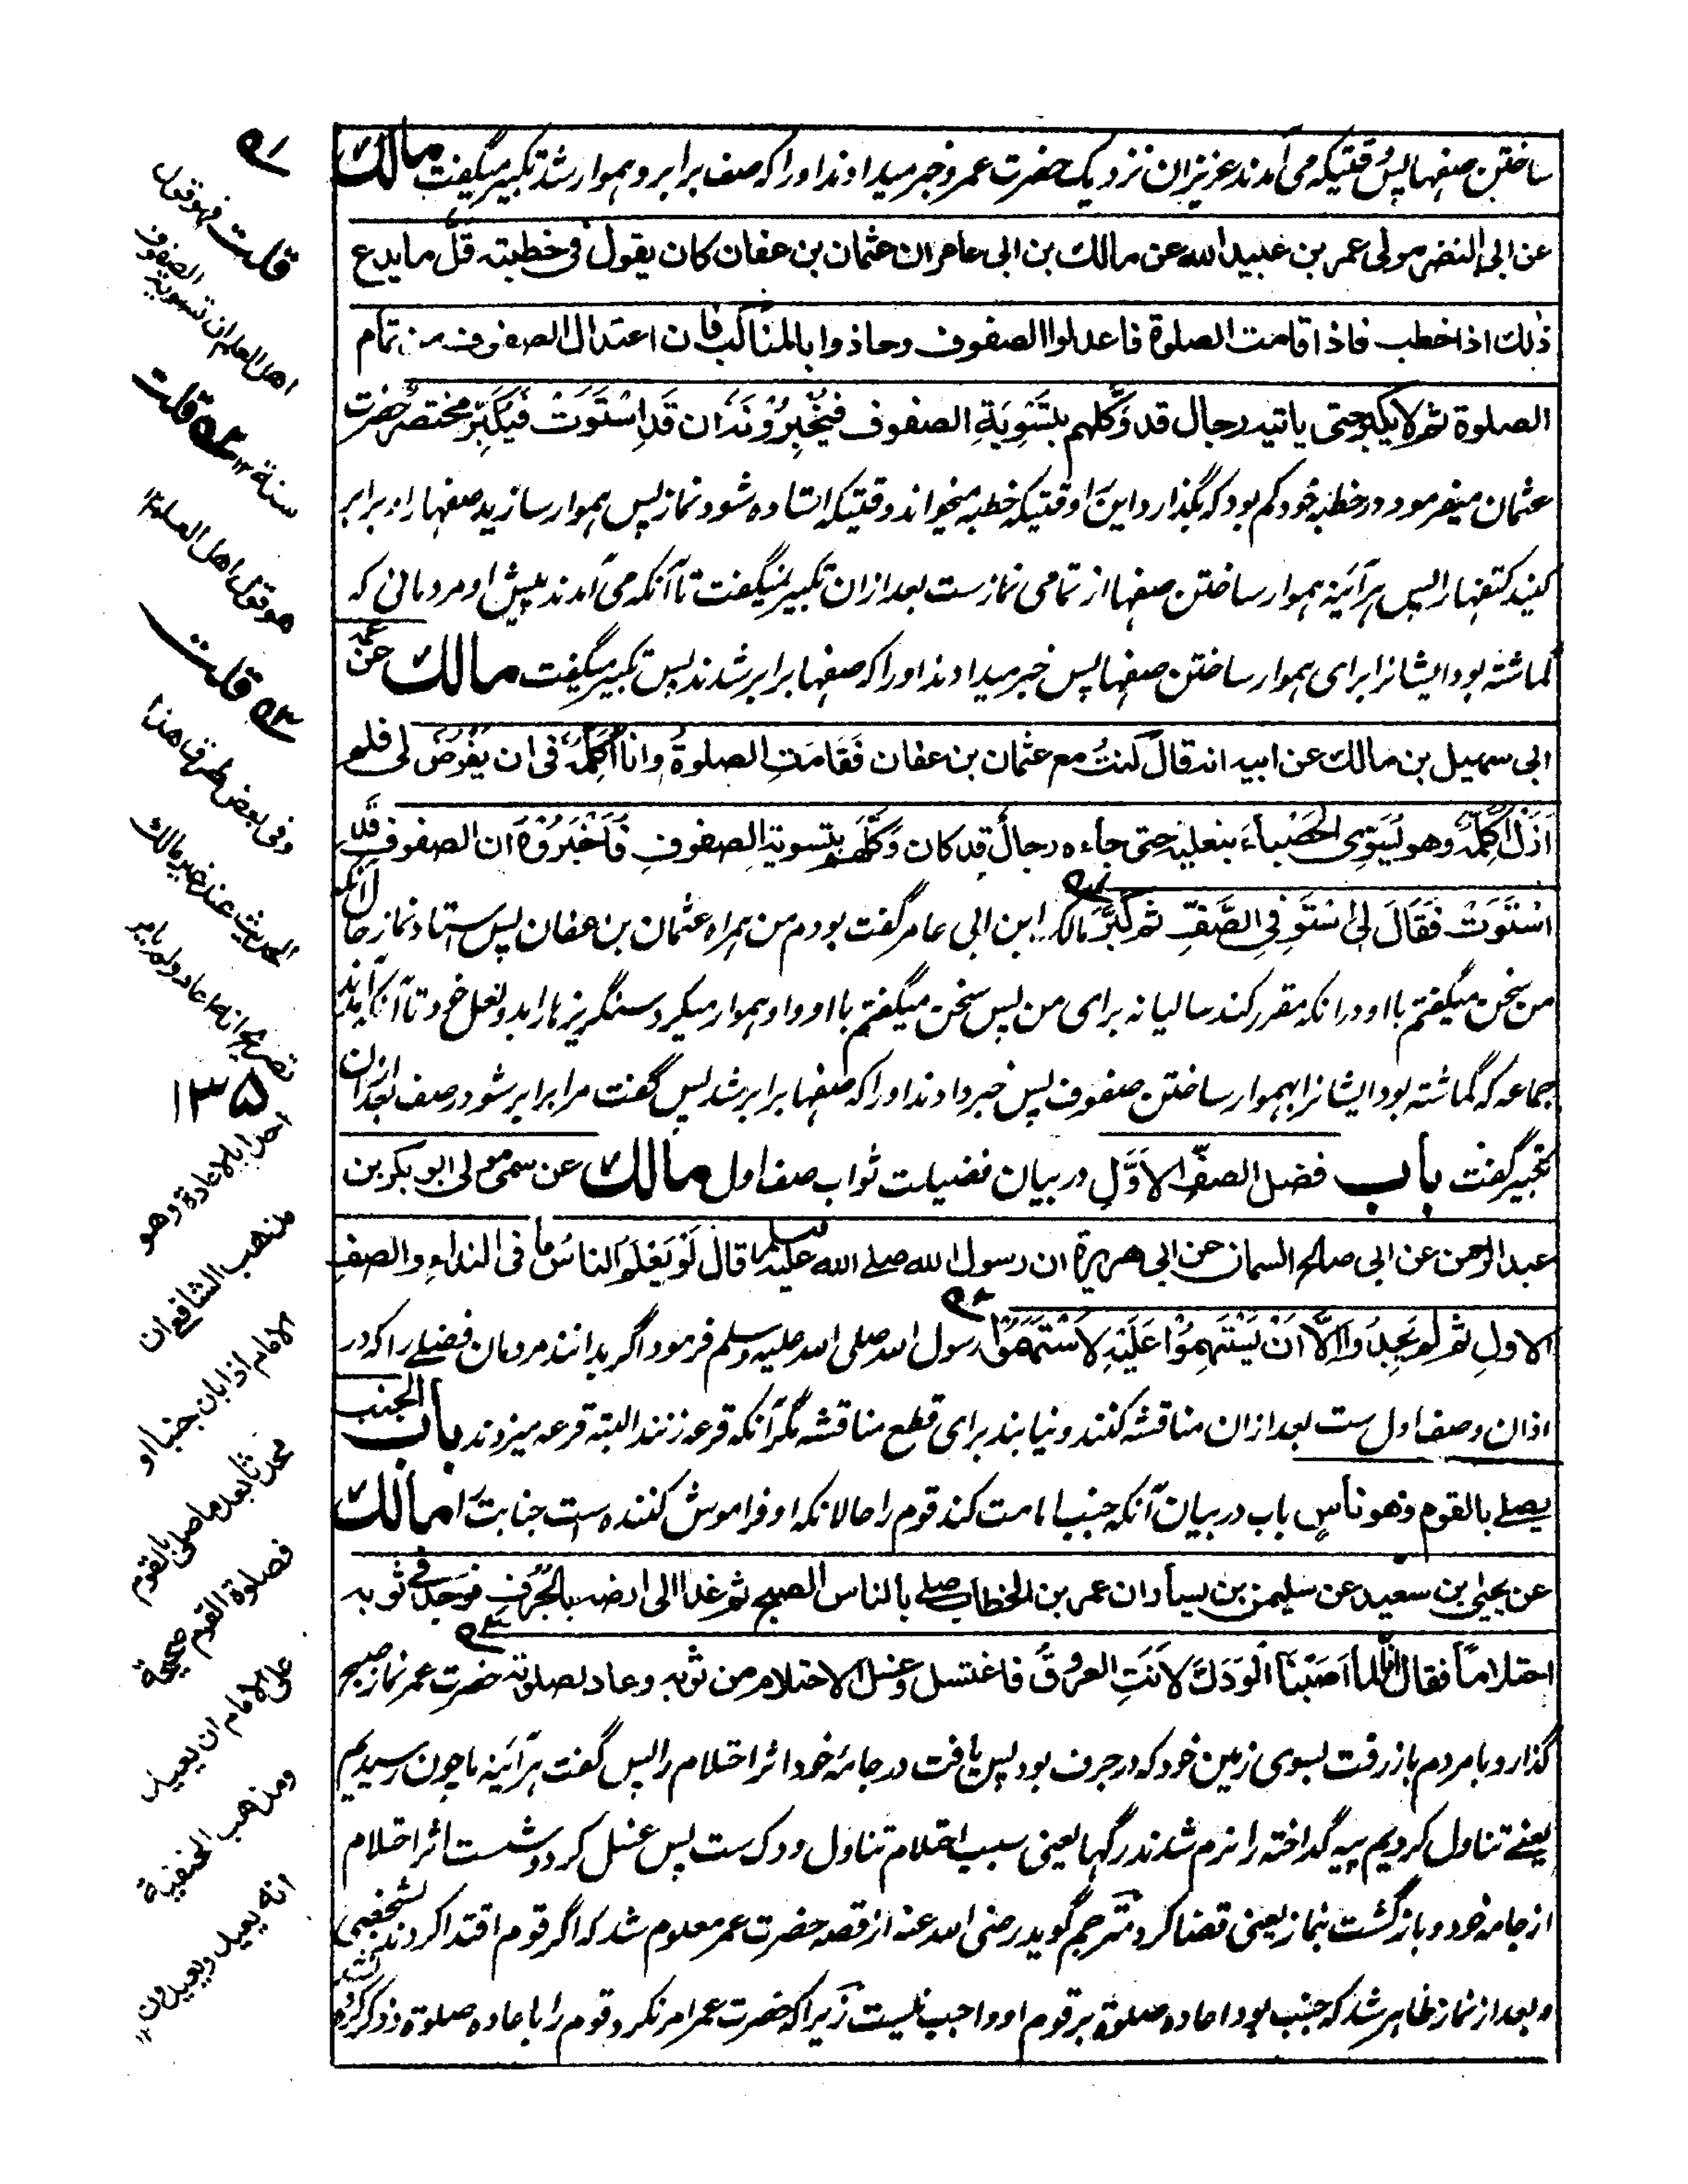 ساختن صفها پس وقتیکه می آمدند عزیزان نزدیک حضرت عمر و خبر میدادند او را که صف برابر و هموار شد تکبیر میگفت مالك
عن ابی النضر مولی عمر بن عبید الله عن مالك بن ابی عامر ان عثمان بن عفان کان یقول فی خطبته قل ما یدع
ذلك اذا خطب فاذا قامت الصلوة فاعدلوا الصفوف وحاذوا بالمناکب فان اعتدال الصفوف من تمام
الصلوة ثم لا یکبر حتی یاتیه رجال قد وکلهم بتسویة الصفوف فیخبرونه ان قد استوت فیکبر مختصر حضرت
عثمان میفرمود در خطبه خود کم بود که بگذارد این را وقتیکه خطبه میخواند وقتیکه استاده شود نماز پس هموار سازید صفها را و برابر
کنید کتفها را پس هر آئینه هموار ساختن صفها از تمامی نمازست بعد ازان تکبیر نمیگفت تا آنکه می آمدند پیش او مردمانی که
گماشته بود ایشانرا برای هموار ساختن صفها پس خبر میدادند او را که صفها برابر شدند پس تکبیر میگفت مالك عن عمه
ابی سهیل بن مالك عن ابیه انه قال کنت مع عثمان بن عفان فقامت الصلوة وانا اکلمه فی ان یفرض لی فلم
ازل اکلمه وهو یسوی الحصباء بنعلیه حتی جاءه رجال قد کان وکلهم بتسویة الصفوف فاخبروه ان الصفوف قد
استوت فقال لی استو فی الصف ثم کبر مالک ابن ابی عامر گفت بودم من همراه عثمان بن عفان پس استاد نماز حال آنکه
من سخن میگفتم با او در انکه مقرر کند سالیانه برای من پس سخن میگفتم با او و او هموار میکرد سنگریزها را بدو نعل خود تا آنکه آمدند
جماعه که گماشته بود ایشانرا بهموار ساختن صفوف پس خبر دادند او را که صفها برابر شد پس گفت مرا برابر شو در صف بعد ازان
تکبیر گفت باب فضل الصف الاول در بیان فضیلت ثواب صف اول مالك عن سمی مولی ابو بکر بن
عبد الرحمن عن ابی صالح السمان عن ابی هریرة ان رسول الله صلے الله علیه وسلم قال لو یعلم الناس ما فی النداء والصف
الاول ثم لم یجدوا الا ان یستهموا علیه لاستهموا رسول الله صلی الله علیه وسلم فرمود اگر بدانند مردمان فضلے را که در
اذان وصف اول ست بعد ازان مناقشه کنند و نیابند برای قطع مناقشه مگر آنکه قرعه زنند البته قرعه میزدند باب الجنب
یصلے بالقوم وهو ناس باب در بیان آنکه جنب امامت کند قوم را حالانکه او فراموش کننده است جنابت را مالك
عن یحیی بن سعید عن سلیمن بن یسار ان عمر بن الخطاب صلے بالناس الصبح ثم غدا الی ارضه بالجرف فوجد فی ثوبه
احتلاما فقال انا لما اصبنا الودك لانت العروق فاغتسل وغسل الاحتلام من ثوبه وعاد لصلوته حضرت عمر نماز صبح
گذارد با مردم باز رفت بسوی زمین خود که در جرف بود پس یافت در جامۂ خود اثر احتلام را پس گفت هر آئینه ما چون رسیدیم
یعنے تناول کردیم پیه گداخته را نرم شدند رگها یعنی سبب احتلام تناول ودک ست پس غسل کرد و شست اثر احتلام
از جامه خود و بازگشت بنماز یعنی قضا کرد مترجم گوید رضی الله عنه از قصه حضرت عمر معلوم شد که اگر قوم اقتدا کردند بشخصی
و بعد از نماز ظاهر شد که جنب بود اعاده صلوة بر قوم او واجب نیست زیرا که حضرت عمر امر نکرد قوم را باعاده صلوة و ذکر کرده
قلت فهو قول
اهل العلم ان تسویة الصفوف
سنة ۱۲ قلت
هو قول اهل العلم
قلت
وفی بعض طرق هذا
الحدیث عند غیر مالك
تصریح انه اعاد ولم یامر
۱۳۵
احدا بالاعادة وهو
مذهب الشافعی ان
الامام اذا بان جنبا او
محدثا بعد ما صلی بالقوم
فصلوة القوم صحیحة
علی الامام ان یعید
ومذهب الحنفیة
انه یعید ویعیدون